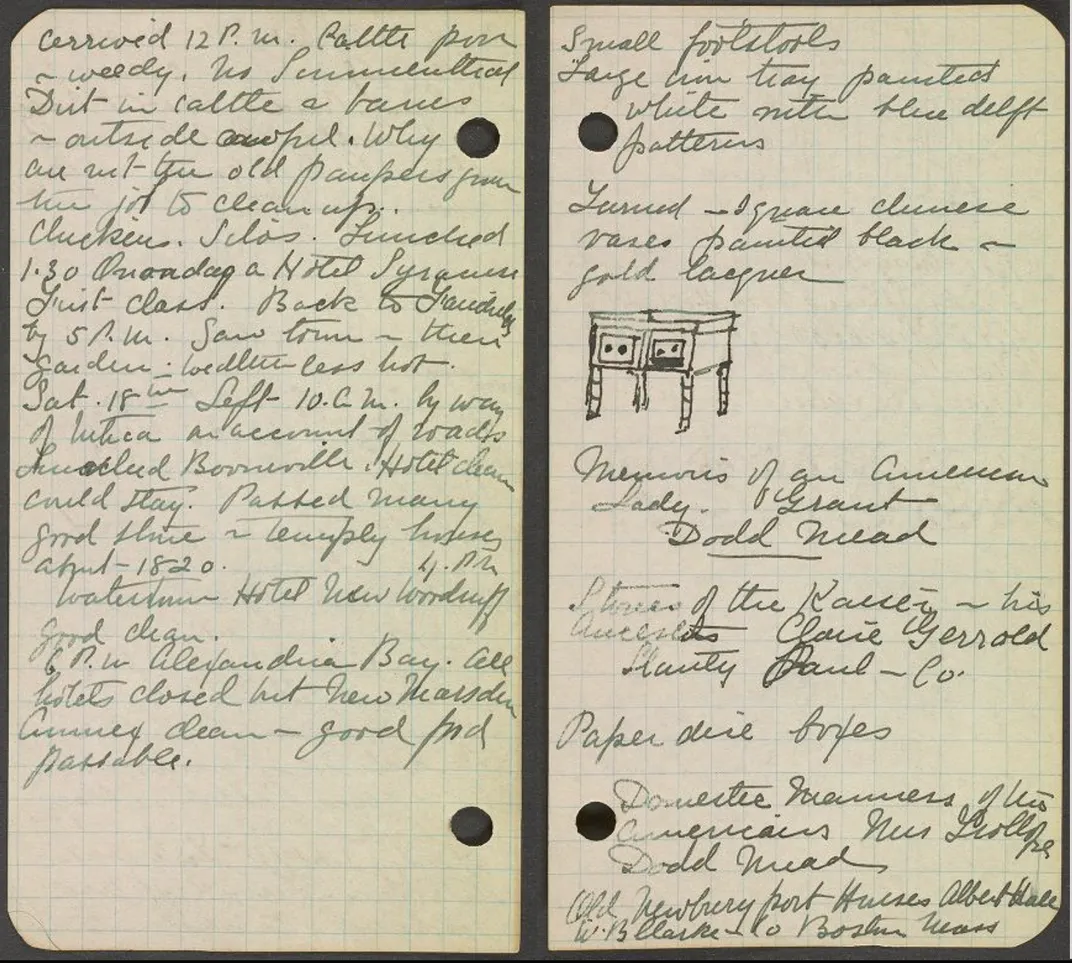 arrived 12 P.M. Cattle poor
~ weedy. No Simmenthal
Dirt in cattle & barns
~ outside awful. Why
are not the old paupers given
the job to clean up.
Chickens. Silos. Lunched
1.30 Onondaga Hotel Syracuse
First class. Back to
by 5 P.M. Saw town ~ their
garden. less hot.
Sat. 18th Left 10.A.M. by way
of Utica on account of roads
Lunched Boonville. Hotel clean
could stay. Passed many
good stone ~ temply houses
about 1820. 4. P.M
Watertown Hotel New Woodruff
good clean.
6 P.M Alexandria Bay. All
hotels closed but New Marsden
Annex clean ~ good food
passable.
Small footstools
Large iron tray painted
white with blue delft
patterns
Turned ~ square chinese
vases painted black ~
gold lacquer
Memoirs of an American
Lady. Grant
Dodd Mead
Stories of the Kaiser ~ his
Ancestors Clare Gerrold
Stanly Paul ~ Co.
Paper dire boxes
Domestic Manners of the
Americans Mrs Trollope
Dodd Mead
Old Newburyport Houses Albert Hale
W.B Clarke ~ Co Boston Mass